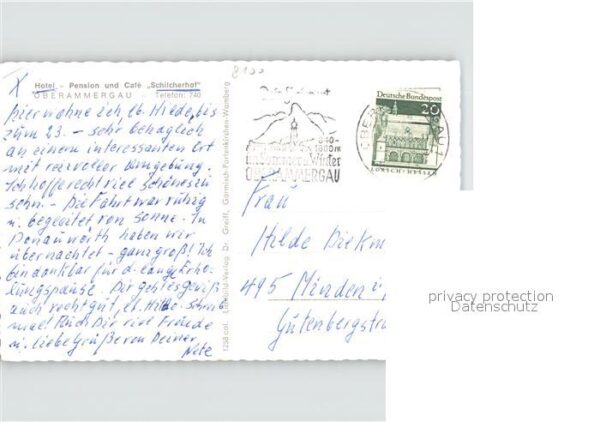 X
Hotel - Pension und Café „Schilcherhof"
OBERAMMERGAU - Telefon: 740
Hier wohne ich, lb. Hilde, bis
zum 23. - sehr behaglich
an einem interessanten Ort
mit reizvoller Umgebung.
Ich hoffe recht viel Schönes zu
sehn. - Die Fahrt war ruhig
u. begleitet von Sonne. In
Donauwörth haben wir
übernachtet - ganz groß! Ich
bin dankbar für d. lange Erho-
lungspause. Dir geht es gewiß
auch recht gut, lb. Hilde - schreib
mal! Dir viel Freude
u. liebe Grüße von Deiner
1258 col. Verlag Dr. Greiff, Garmisch-Partenkirchen-Wamberg
8100
1800m
im Sommer u. Winter
OBERAMMERGAU
Deutsche Bundespost
20
LORSCH/HESSEN
Frau
Hilde Diekm
495 Minden i.
Gutenbergstra
privacy protection
Datenschutz